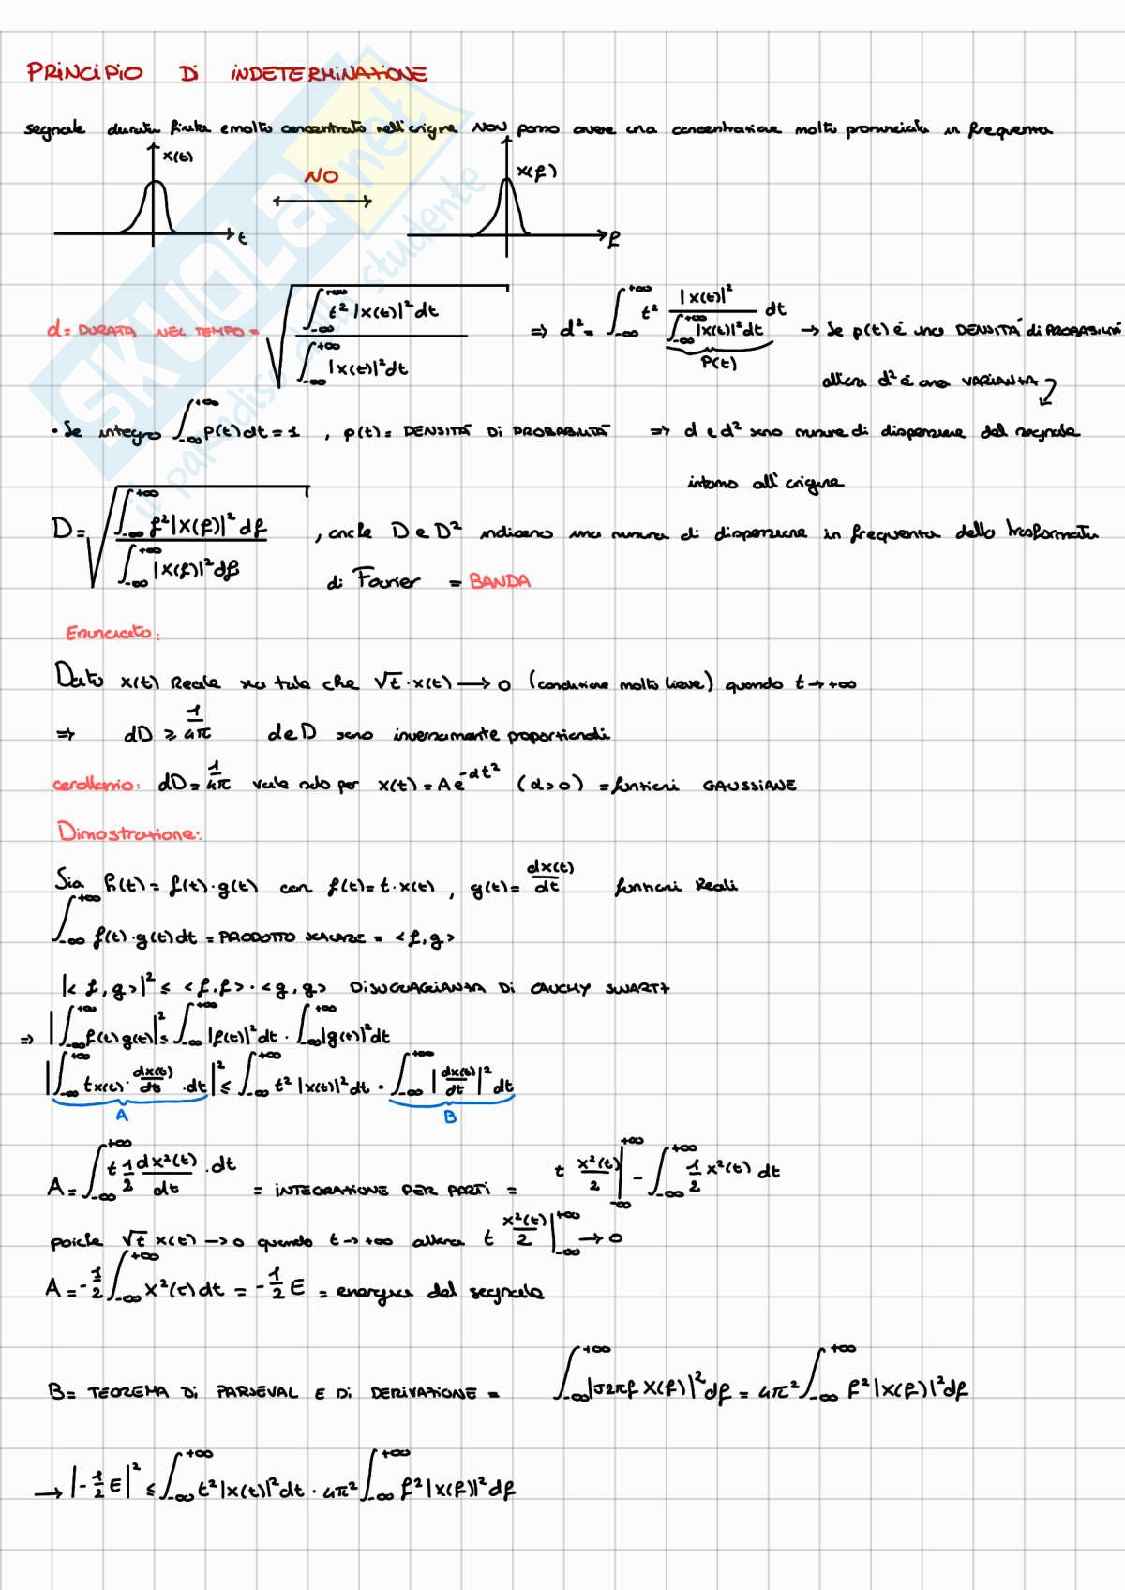 PRINCIPIO DI INDETERMINAZIONE
segnale durata finita e molto concentrato nell'origine NON posso avere una concentrazione molto pronunciata in frequenza
x(t) NO X(f)
t f
d = DURATA NEL TEMPO = √( ∫_{-∞}^{+∞} t² |x(t)|² dt / ∫_{-∞}^{+∞} |x(t)|² dt ) ⇒ d² = ∫_{-∞}^{+∞} t² |x(t)|² / ∫_{-∞}^{+∞} |x(t)|² dt dt → Se p(t) è una DENSITÀ di PROBABILITÀ
P(t)
allora d² è una VARIANZA
• Se integro ∫_{-∞}^{+∞} p(t) dt = 1 , p(t) = DENSITÀ DI PROBABILITÀ ⇒ d e d² sono misure di dispersione del segnale
intorno all'origine
D = √( ∫_{-∞}^{+∞} f² |X(f)|² df / ∫_{-∞}^{+∞} |X(f)|² df ) , anche D e D² indicano una misura di dispersione in frequenza della trasformata
di Fourier = BANDA
Enunciato:
Dato x(t) Reale tale che √t · x(t) → 0 (condizione molto lieve) quando t → +∞
⇒ dD ≥ 1/4π d e D sono inversamente proporzionali
corollario: dD = 1/4π vale solo per x(t) = A e^{-αt²} (α > 0) = funzioni GAUSSIANE
Dimostrazione:
Sia h(t) = f(t) · g(t) con f(t) = t · x(t) , g(t) = dx(t)/dt funzioni Reali
∫_{-∞}^{+∞} f(t) · g(t) dt = PRODOTTO SCALARE = <f, g>
|<f, g>|² ≤ <f, f> · <g, g> DISUGUAGLIANZA DI CAUCHY SWARTZ
⇒ |∫_{-∞}^{+∞} f(t) g(t)|² ≤ ∫_{-∞}^{+∞} |f(t)|² dt · ∫_{-∞}^{+∞} |g(t)|² dt
|∫_{-∞}^{+∞} t x(t) · dx(t)/dt · dt|² ≤ ∫_{-∞}^{+∞} t² |x(t)|² dt · ∫_{-∞}^{+∞} |dx(t)/dt|² dt
A B
A = ∫_{-∞}^{+∞} t 1/2 dx²(t)/dt · dt = INTEGRAZIONE PER PARTI = t x²(t)/2 |_{-∞}^{+∞} - ∫_{-∞}^{+∞} 1/2 x²(t) dt
poiché √t x(t) → 0 quando t → +∞ allora t x²(t)/2 |_{-∞}^{+∞} → 0
A = -1/2 ∫_{-∞}^{+∞} x²(t) dt = -1/2 E = energia del segnale
B = TEOREMA DI PARSEVAL E DI DERIVAZIONE = ∫_{-∞}^{+∞} |j2πf X(f)|² df = 4π² ∫_{-∞}^{+∞} f² |X(f)|² df
→ |-1/2 E|² ≤ ∫_{-∞}^{+∞} t² |x(t)|² dt · 4π² ∫_{-∞}^{+∞} f² |X(f)|² df
SKUOLA.net